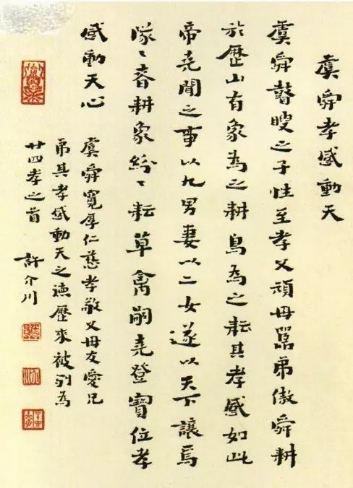 虞舜孝感動天
虞舜瞽瞍之子性至孝父頑母嚚弟傲舜耕
於歷山有象為之耕鳥為之耘其孝感如此
帝堯聞之事以九男妻以二女遂以天下讓焉
隊〻春耕象紛〻耘草禽嗣堯登寶位孝
感動天心
虞舜寬厚仁慈孝敬父母友愛兄
弟其孝感動天之德歷來被列為
廿四孝之首 許介川